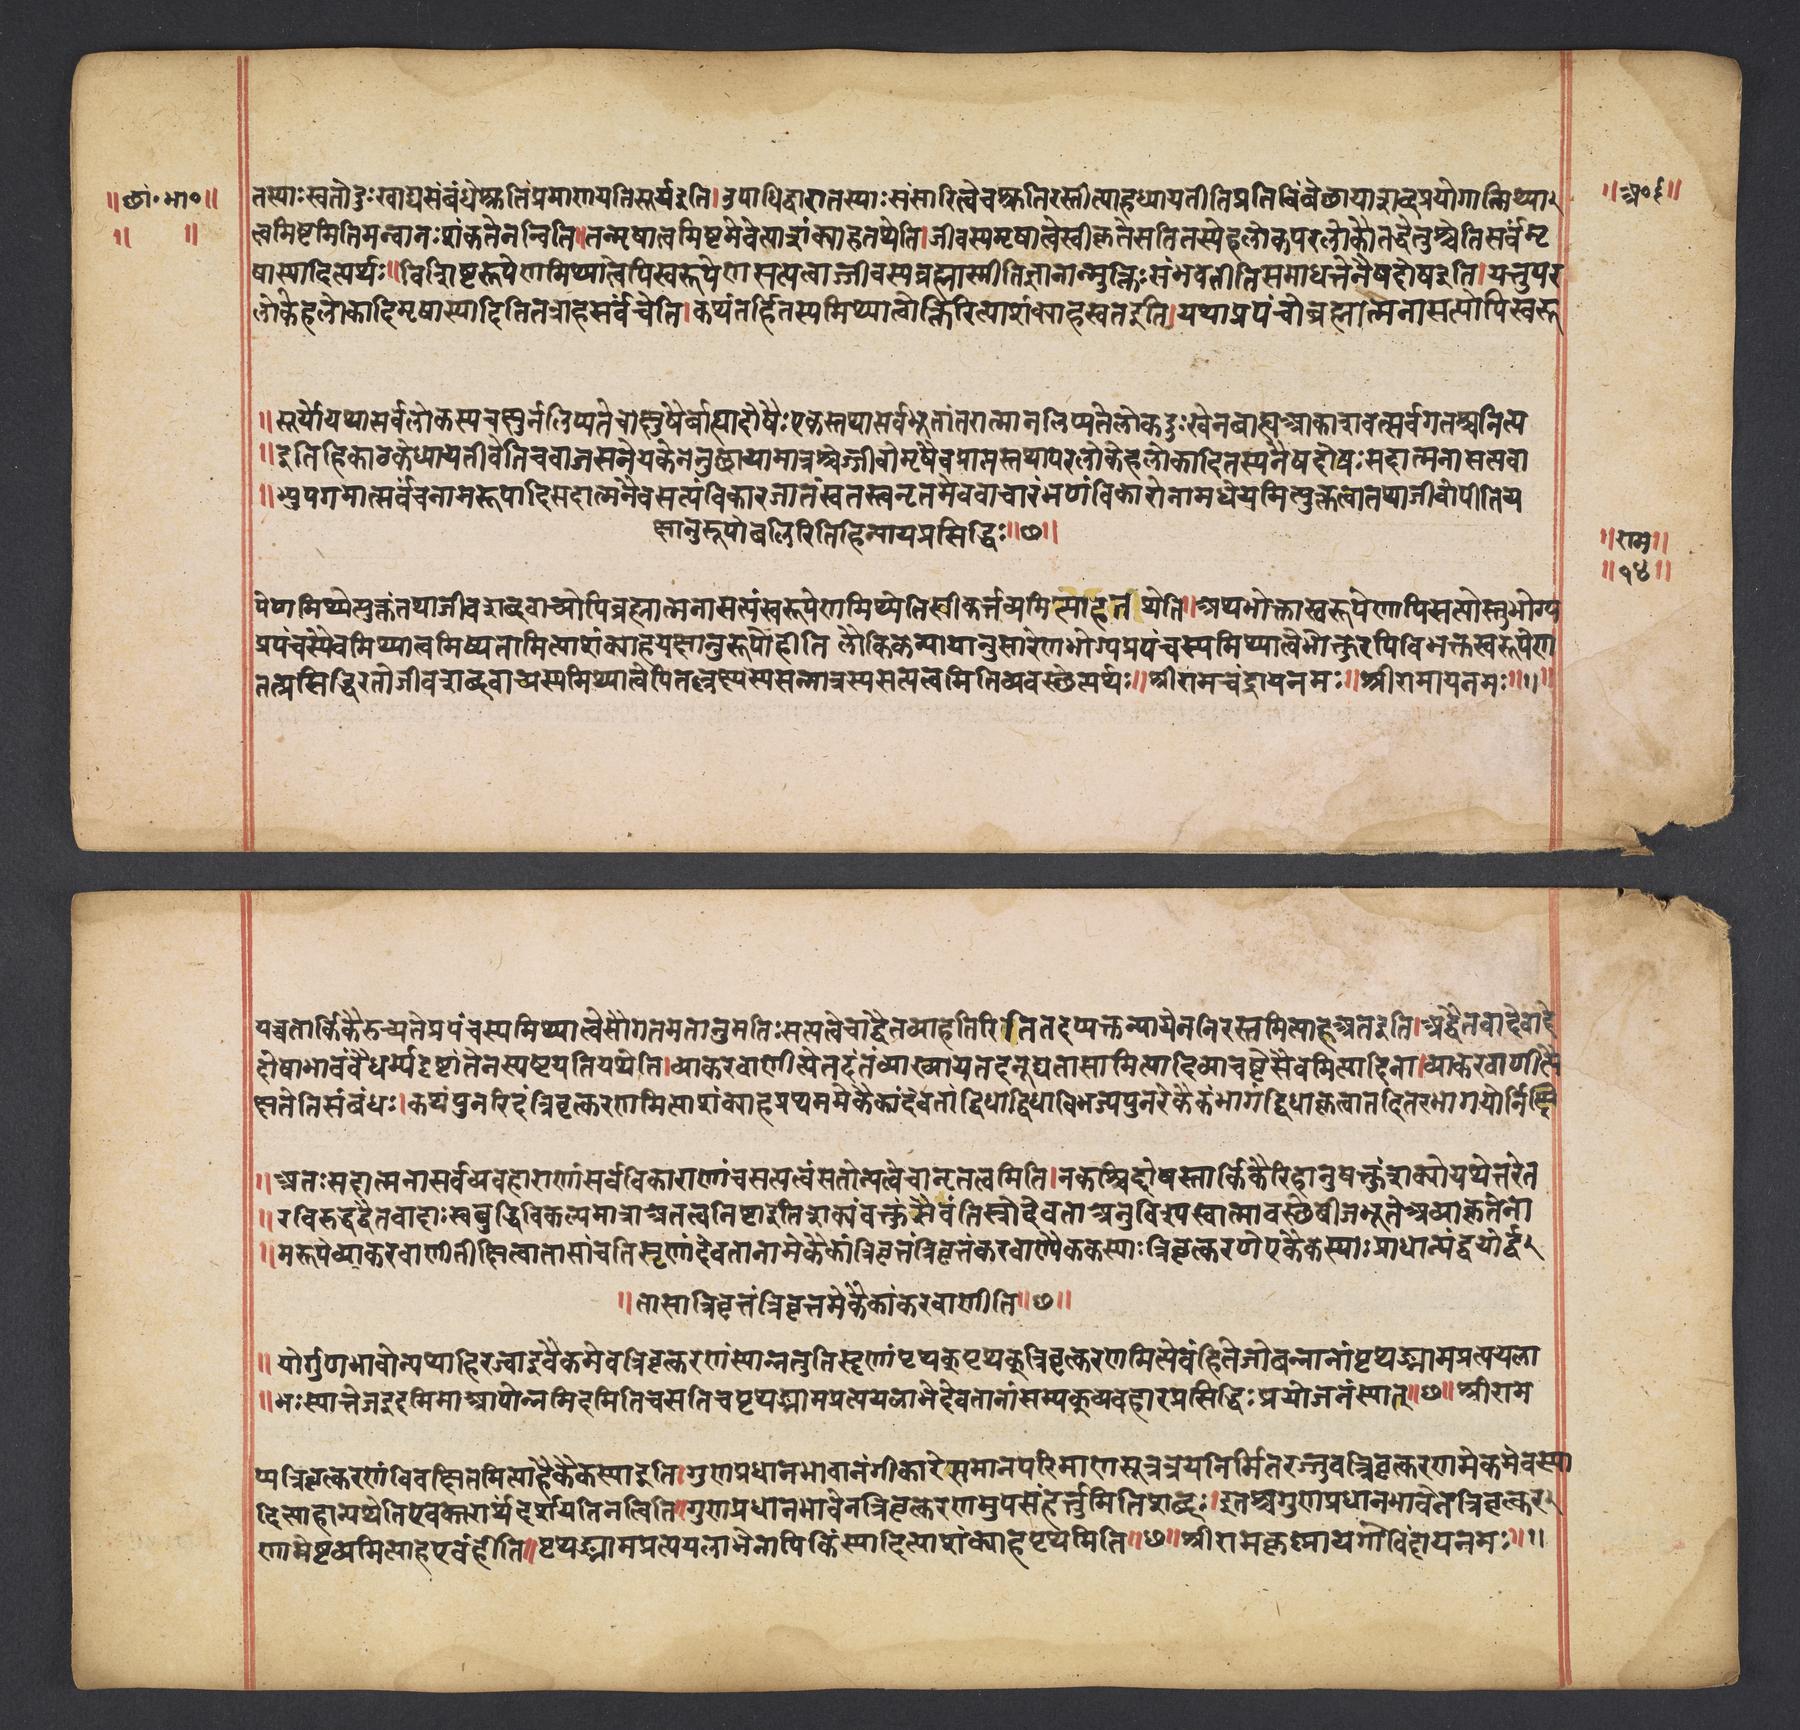 ॥छां॰भा॰॥
॥ ॥
॥अ॰६॥
तस्याःस्वतोदुःखाद्यसंबंधेश्रुतिंप्रमाणयतिसूर्यइति।उपाधिद्वारातस्याःसंसारित्वेचश्रुतिरस्तीत्याहध्यायतीतिप्रतिबिंबेछायाशब्दप्रयोगान्मिथ्या
त्वमिष्टमितिमन्वानःशंकतेनन्विति॥तन्मृषात्वमिष्टमेवेत्याशंक्याहतथेति।जीवस्यमृषात्वेस्वीकृतेसतितस्येहलोकपरलोकौतद्धेतुश्चेतिसर्वंमृ
षास्यादित्यर्थः॥विशिष्टरूपेणमिथ्यात्वेपिस्वरूपेणसत्यत्वाज्जीवस्यब्रह्मास्मीतिज्ञानान्मुक्तिःसंभवतीतिसमाधत्तेनैषदोषइति।यत्तुपर
लोकेहलोकादिमृषास्यादितितत्राहसर्वंचेति।कथंतर्हितस्यमिथ्यात्वोक्तिरित्याशंक्याहस्वतइति।यथाप्रपंचोब्रह्मात्मनासत्योपिस्वरू
॥सूर्योयथासर्वलोकस्यचक्षुर्नलिप्यतेचाक्षुषैर्बाह्यदोषैःएकस्तथासर्वभूतांतरात्मानलिप्यतेलोकदुःखेनबाह्यआकाशवत्सर्वगतश्चनित्य
॥इतिहिकाठकेध्यायतीवेतिचवाजसनेयकेननुछायामात्रश्चेज्जीवोमृषैवप्राप्तस्तथापरलोकेहलोकादितस्यनैषदोषःसदात्मनासत्यत्वा
॥भ्युपगमात्सर्वंचनामरूपादिसदात्मनैवसत्यंविकारजातंस्वतस्त्वनृतमेववाचारंभणंविकारोनामधेयमित्युक्तत्वात्तथाजीवोपीतिय
क्षानुरूपोबलिरितिहिन्यायप्रसिद्धिः॥७॥
॥राम॥
॥१४॥
पेणमिथ्येत्युक्तंतथाजीवशब्दवाच्योपिब्रह्मात्मनासत्यंस्वरूपेणमिथ्येतिस्वीकर्त्तव्यमित्याहतथेति॥अथभोक्तास्वरूपेणापिसत्योस्तुभोग्य
प्रपंचस्यैवमिथ्यात्वमिष्यतामित्याशंक्याहयक्षानुरूपोहीति लौकिकन्यायानुसारेणभोग्यप्रपंचस्यमिथ्यात्वेभोक्तुरपिविभक्तस्वरूपेण
तत्प्रसिद्धिरतोजीवशब्दवाच्यस्यमिथ्यात्वेपितल्लक्ष्यस्यसन्मात्रस्यसत्यत्वमितिव्यवस्थेत्यर्थः॥श्रीरामचंद्रायनमः॥श्रीरामायनमः॥॥
यच्चतार्किकैरुच्यतेप्रपंचस्यमिथ्यात्वेसौगतमतानुमतिःसत्यत्वेचाद्वैतव्याहतिरितितदप्यक्तन्यायेननिरस्तमित्याहअतइति।अद्वैतवादेवादे
दोषाभावंवैधर्म्यदृष्टांतेनस्पष्टयतियथेति।व्याकरवाणीत्येतदंतंव्याख्यायतदनूद्यतासामित्यादिव्याचष्टेसैवमित्यादिना।व्याकरवाणीत्यै
क्षतेतिसंबंधः।कथंपुनरिदंत्रिवृत्करणमित्याशंक्याहप्रथममेकैकांदेवतांद्विधाद्विधाविभज्यपुनरेकैकंभागंद्विधाकृत्वातदितरभागयोर्निक्षि
॥अतःसदात्मनासर्वव्यवहाराणांसर्वविकाराणांचसत्यत्वंसतोन्यत्वेचानृतत्वमिति।नकश्चिद्दोषस्तार्किकैरिहानुषक्तुंशक्योयथेतरेत
॥रविरुद्धद्वैतवादाःस्वबुद्धिविकल्पमात्राअतत्वनिष्ठाइतिशक्यंवक्तुंसैवंतिस्त्रोदेवताअनुविश्यस्वात्मावस्थेबीजभूतेअव्याकृतेना
॥मरूपेव्याकरवाणीतीक्षित्वातासांचतिसृणांदेवतानामेकैकांत्रिवृतंत्रिवृतंकरवाण्येकैकस्याःत्रिवृत्करणेएकैकस्याःप्राधान्यंद्वयोर्द्व
॥तासांत्रिवृतंत्रिवृतमेकैकांकरवाणीति॥७॥
॥योर्गुणभावोन्यथाहिरज्वाइवैकमेवत्रिवृत्करणंस्यान्नतुतिसृणांपृथक्पृथक्त्रिवृत्करणमित्येवंहितेजोबन्नानांपृथङ्नामप्रत्ययला
॥भःस्यात्तेजइदमिमाआपोन्नमिदमितिचसतिचपृथङ्नामप्रत्ययलाभेदेवतानांसम्यक्व्यवहारप्रसिद्धिःप्रयोजनंस्यात्॥७॥श्रीराम
प्यत्रिवृत्करणंविवक्षितमित्याहैकैकस्याइति।गुणप्रधानभावानंगीकारेसमानपरिमाणसूत्रत्रयनिर्मितरज्जुवत्रिवृत्करणमेकमेवस्या
दित्याहान्यथेतिएवकारार्थंदर्शयतिनत्विति॥गुणप्रधानभावेनत्रिवृत्करणमुपसंहर्त्तुमितिशब्दः।इतश्चगुणप्रधानभावेनत्रिवृत्कर
णमेष्टव्यमित्याहएवंहीति॥पृथङ्नामप्रत्ययलाभेनापिकिंस्यादित्याशंक्याहपृथगिति॥७॥श्रीरामकृष्णायगोविंदायनमः॥॥